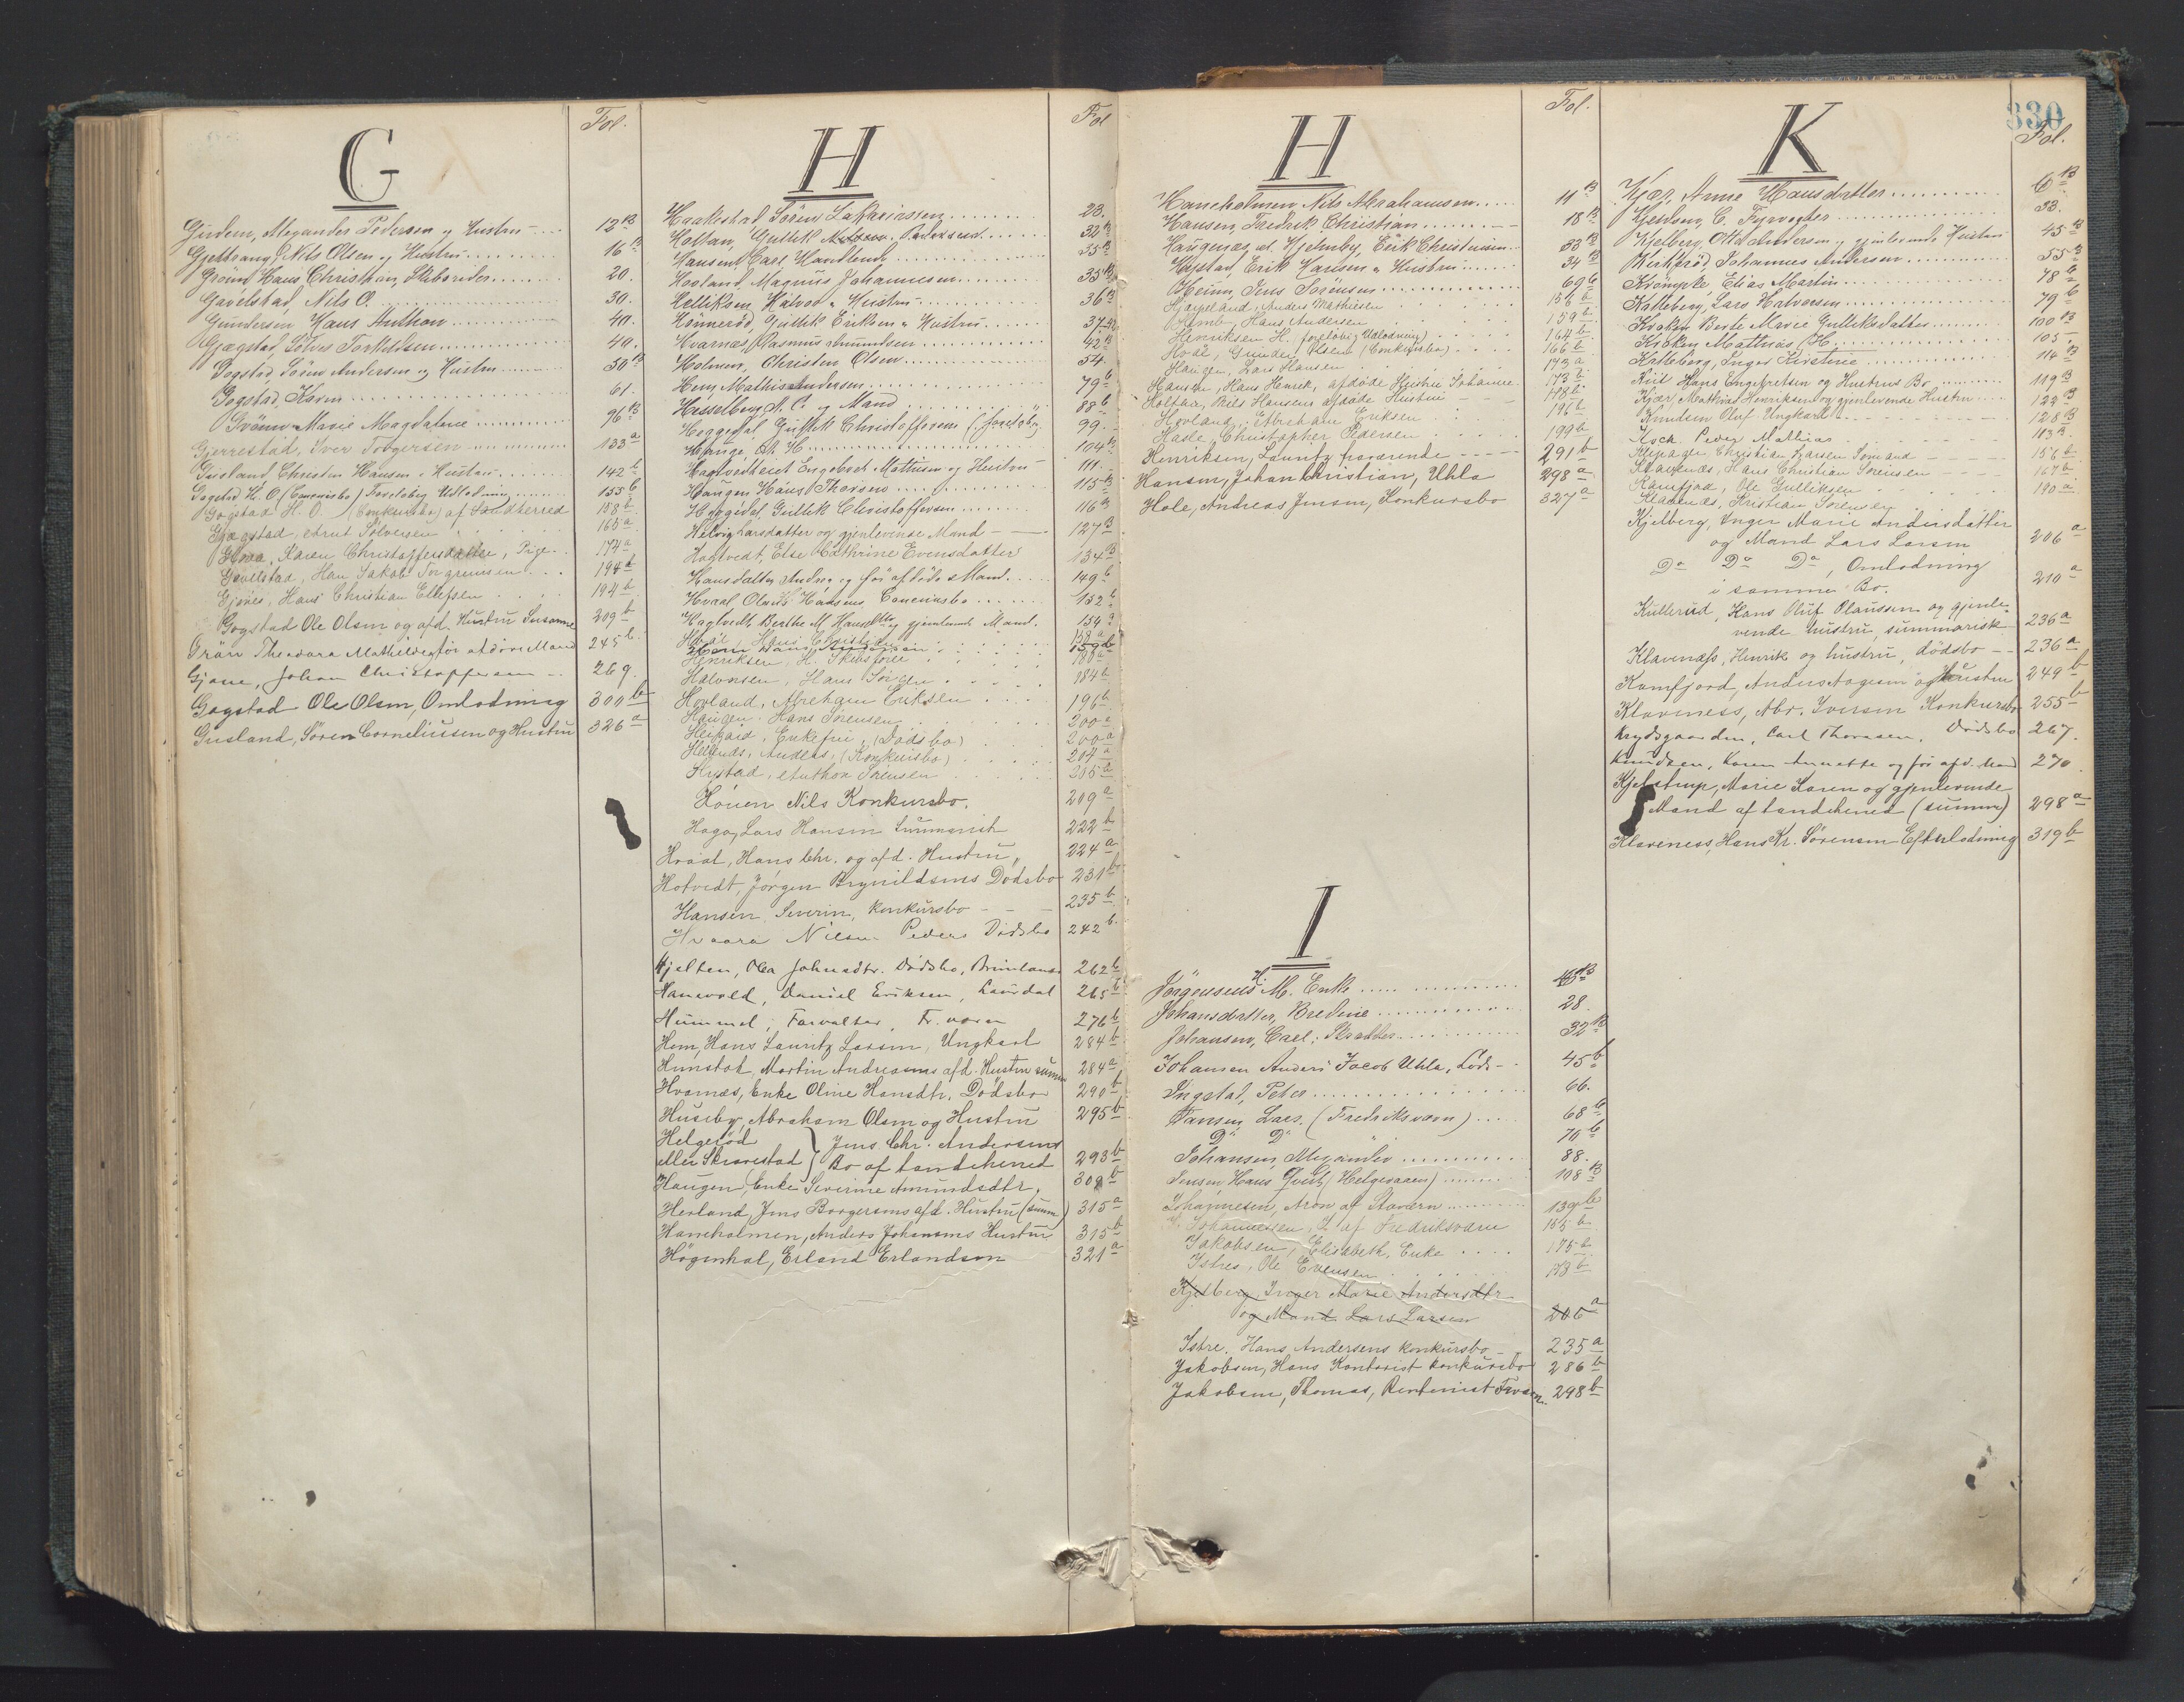 G
Fol.
Gjerdem, Alexander Pedersen og Hustru 12 B
Nils Olsen og Hustru 16 B
Grönn, Hans Christian, Skibsreder 20.
Gavelstad, Nils O. 30.
Gundersen Hans Anthon 40.
Gjægstad, Sölver Torkildsen 40.
Gogstad, Sören Andersen og Hustru 50 B
Gogstad, Karen 61.
Grönn Marie Magdalene 96 B
Gjerrestad, Iver Torgersen 133 a
Gusland, Christen Hansen & Hustru 142 b
Gogstad H. O. (Concursbo) Foreløbig Udlodning 155 b
Gogstad H. O. (Konkursbo) af Sandherred 158 b
Gjægstad, Arnt Sölvesen 165 a
Karen Christoffersdatter, Pige 174 a
Gavelstad, Hans Jakob Torgrimsen 194 b
Gjönes, Hans Christian Ellefsen 194 b
Gogstad Ole Olsen og afd. Hustru Susanne 209 b
Grån Theodora Mathilde og før afdöde Mand 245 b
Gjone, Johan Christoffersen 269.
Gogstad Ole Olsen, Omlodning 300 b
Gusland, Sören Corneliussen og Hustru 326 a
H
Fol
Haakestad Sören Zakariassen 23.
Holtan, Gullik Pedersen 32 B
Hansen, Carl 35 B
Hovland, Magnus Johannesen 35 B
Helliksen, Halvor & Hustru 36 B
Hönneröd, Gullik Eriksen & Hustru 37
Hvarnæs, Rasmus Amundsen 42 B
Holmen, Christen Olsen 54.
Hem, Mathis Andersen 79 b
Hesselberg, A. C. og Mand 88 b
Heggedal, Gullik Christoffersen 99.
Hfange, A. H. 104 B
Hagtvedteiet Engebret Mathisen og Hustru 111.
Haugen Hans Thorsen 115 B
Heggedal, Gullik Christoffersen 116 B
Helvig Larsdatter og gjenlevende Mand 127 B
Hagtvedt, Else Cathrine Evensdatter 134 B
Hansdatter Andrea og før afdöde Mand 149 b
Hvaal Olaus Hansens Concursbo 152 b
Hagtvedt Berthe M. Hansdtr og gjenlevende Mand. 154 a
Hvål, Hans Christian 158 a
159 b
Henriksen, H. Skibsfører 180 a
Halvorsen, Hans Sörgen 184 b
Hovland, Abraham Eriksen 196 b
Haugen, Hans Sørensen 200 a
Enkefru, (Dødsbo) 200 a
Helgnæs, Anders, (Konkursbo) 204 a
Hystad, Anthon Sørensen 205 a
Höuen Nils Konkursbo. 209 a
Haga, Lars Hansen Summarisk 222 b
Hvaal, Hans Chr. og afd. Hustru 224 a
Hotvedt, Jörgen Brynildsens Dödsbo 231 b
Hansen Severin, konkursbo 235 b
Hvaara Nilsen Peders Dødsbo 242 b.
Hjelten, Olea Johnsdtr. Dødsbo, Brunlanæs 262 b
Hanevold, Daniel Eriksen, Laurdal 265 b
Hummel, Forvalter, Fr.værn 276 b
Hem, Hans Lauritz Larsen, Ungkarl 284 b
Hunstok, Martin Andreasens afd. Hustru summ 284 a
Hvarnæs, Enke Oline Hansdtr. Dødsbo 290 b
Huseby, Abraham Olsen og Hustru 295 b
Helgeröd
eller Skravestad } Jens Chr. Andersens Bo af Sandeherred 293 b
Haugen, Enke Severine Amundsdtr. 308 b
Hovland, Jens Borgersens afd. Hustru (summ) 315 a
Haneholmen, Anders Johansens Hustru 315 b
Högenhal, Erland Erlandsen 321 a
H
Fol.
Haneholmen Nils Abrahamsen 11 B
Hansen, Fredrik Christian 18 B
Haugenæs Erik Christensen 33 B
Høystad, Erik Hansen & Hustru 34 B
Heum, Jens Sörensen 69 b
Hjørpeland, Anders Mathiesen 156 b
Hemb, Hans Andersen 159 b
Henriksen H. foreløbig Udlodning 164 b
Hvål, Gunder Olsen (Konkursbo) 166 b
Haugen, Lars Hansen 173 a
Hansen, Hans Henrik, afdøde Hustru Johanne 173 b
Holtan, Nils Hansens afdøde Hustru 178 b.
Hovland, Abraham Eriksen 196 b
Hasle, Christopher Pedersen 199 b
Henriksen, Lauritz fraværende 291 b
Hansen, Johan Christian, Uhla 298 a
Hole, Andreas Jensen, Konkursbo 327 a
I
Jörgensens H. M. Enke
Johansdatter, Bredine 28.
Johansen, Carl, Skrædder 32 B
Johansen Anders Jacob Uhla, Lods 45 b
Ingstad, Peter 66.
Jansen, Lars, (Fredriksværn) 68 b
Do Do 70 b
Johansen, 88.
Jensen Hans Qvist, (Helgeraaen) 108 B
Johannesen, Aron af Staværn 139 b
Johannessen, L. af Fredriksværn 155 b
Jakobsen, Elisabeth, Enke 175 b
Istre, Ole Evensen 178 b
Kjelberg, Inger Marie Andersdtr
og Mand Lars Larsen 206 a
Istre, Hans Andersens konkursbo 235 a
Jakobsen, Hans Kontorist konkursbo 286 b
Jakobsen, Thomas, Rentenist Fr.værn. 298 b
330
K
Fol.
Kjær, Anne Hansdatter 6 B
C. Fyrvogter 33.
Kjelberg, Otto Andersen og gjenlevende Hustru 45 B
Kirkeröd, Johannes Andersen 55 B
Krömpke Elias Martin 78 b
Kalleberg, Lars Halvorsen 79 b
Kroken Berte Marie Gulliksdatter 100 B
Kroken Mathias H. 105.
Kalleberg, Inger Kirstine 114 B
Kiil Hans Engebretsen og Hustrus Bo 119 B
Kjær, Mathias Henriksen og gjenlevende Hustru 122 B
Knudsen Oluf Ungkarl 128 B
Kock. Peder Mathias 113 B.
Klepager, Christian Larsen Sømand 156 b
Klavenæs, Hans Christian Sørensen 167 b
Kamfjord, Ole Gulliksen 190 a
Klavenæs, Kristian Sørensen
Kjelberg, Inger Marie Andersdatter
og Mand Lars Larsen 206 a
Do Do Do, Omlodning
i samme Bo. 210 a
Kullerud, Hans Oluf Olaussen og gjenle-
vende hustru, summarisk 236 a
Klavenæss, Henrik og hustru, dödsbo 236 a
Kamfjord, Anders Aagesen og Hustru 249 b
Klaveness, Abr. Iversen Konkursbo 255 b
Krydsgaarden, Carl Thoresen, Dødsbo 267.
Knudsen, Karen Annette og før afd. Mand 270.
Kjelstrup, Marie Karen og gjenlevende
Mand af Sandeherred (summ) 298 a
Klaveness, Hans Kr. Sörensen Efterlodning 319 b